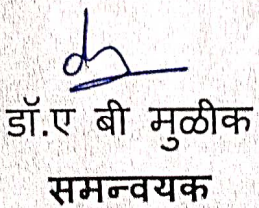 डॉ.ए बी मुळीक
समन्वयक